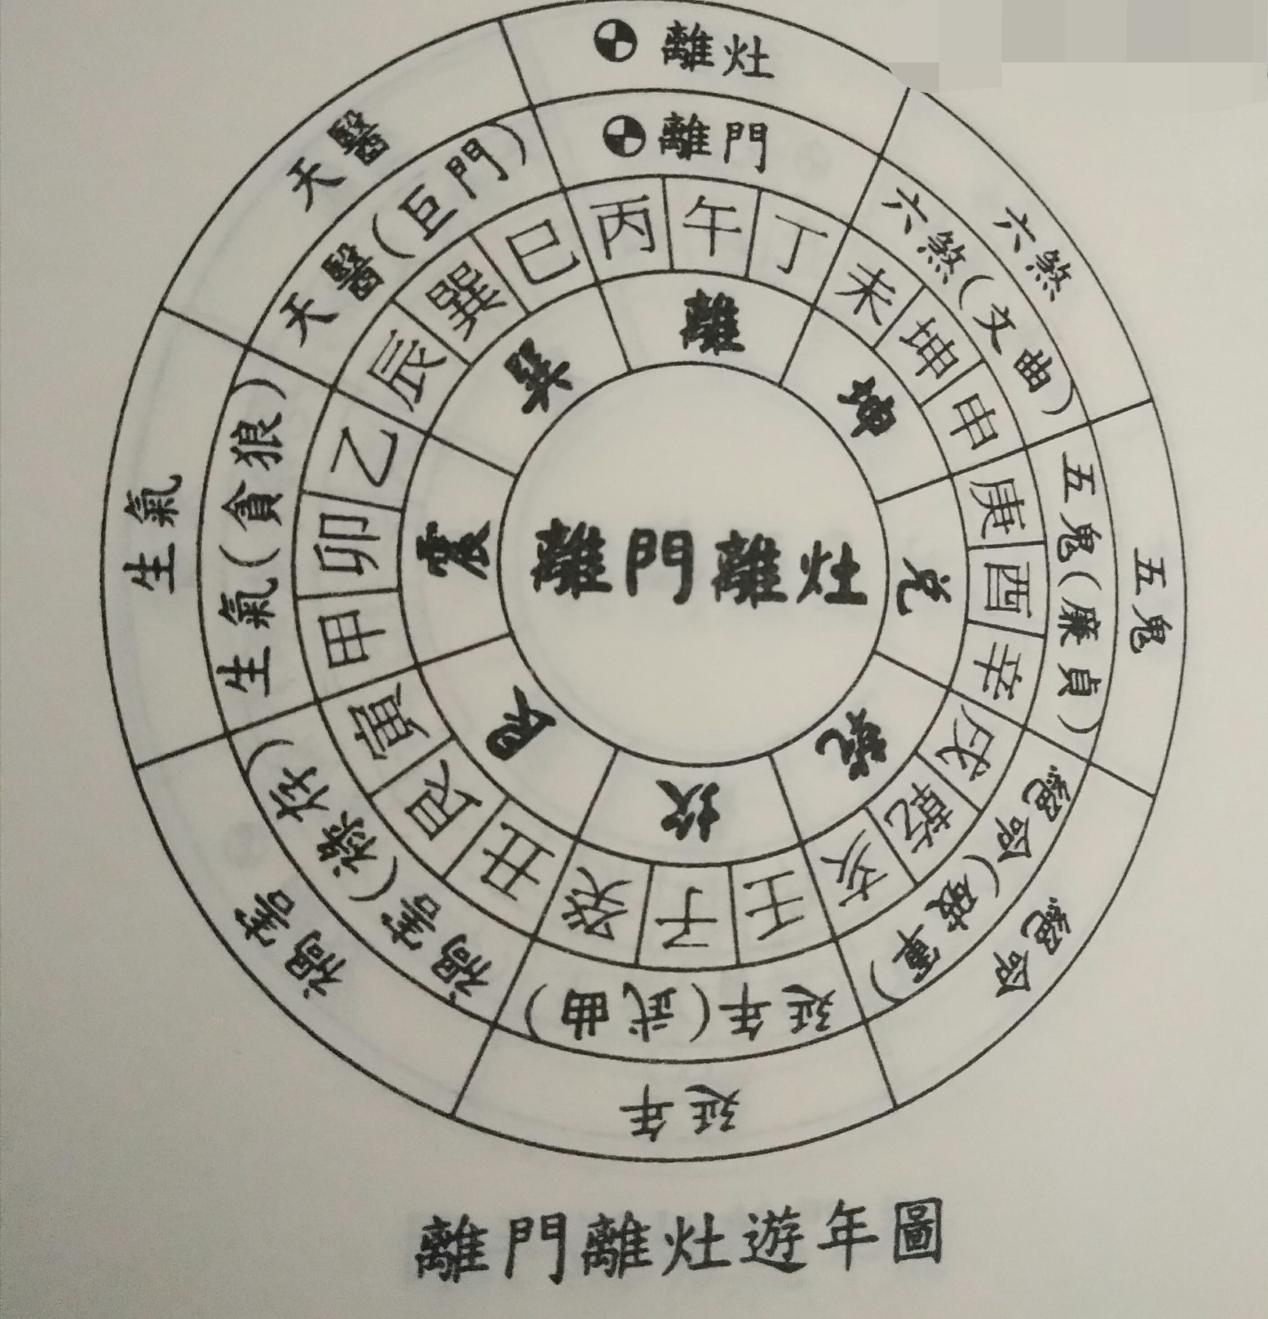 離灶
離門
六煞
六煞(文曲)
五鬼
五鬼(廉貞)
絕命
絕命(破軍)
延年
延年(武曲)
禍害
禍害(祿存)
生氣
生氣(貪狼)
天醫
天醫(巨門)
丙
午
丁
未
坤
申
庚
酉
辛
戌
乾
亥
壬
子
癸
丑
艮
寅
甲
卯
乙
辰
巽
巳
離
坤
兌
乾
坎
艮
震
巽
離門離灶
離門離灶遊年圖